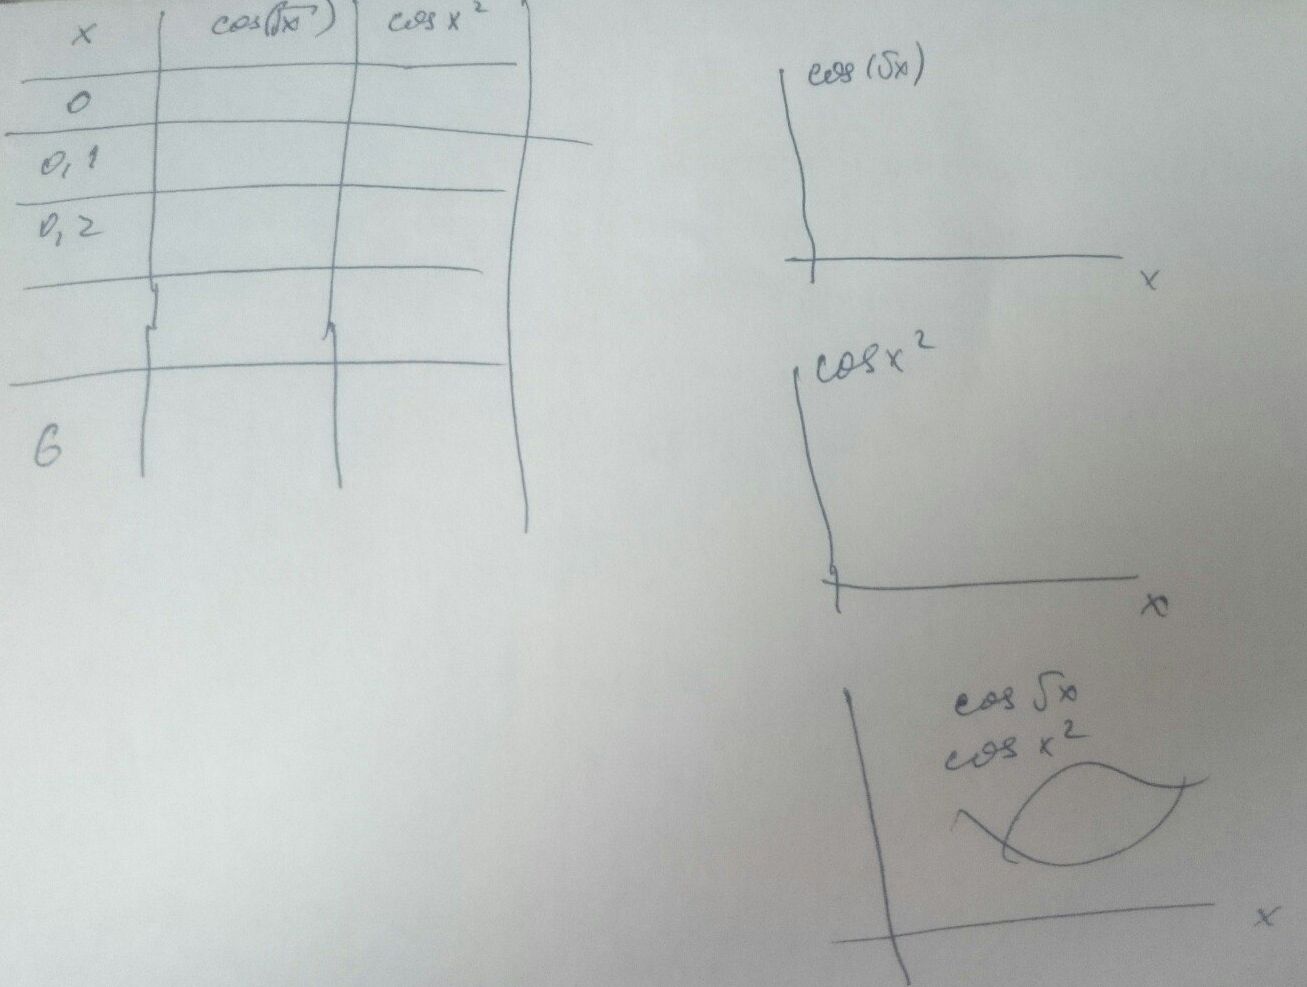 x cos(√x) cos x²
0
0,1
0,2
6
cos(√x)
x
cos x²
x
cos √x
cos x²
x